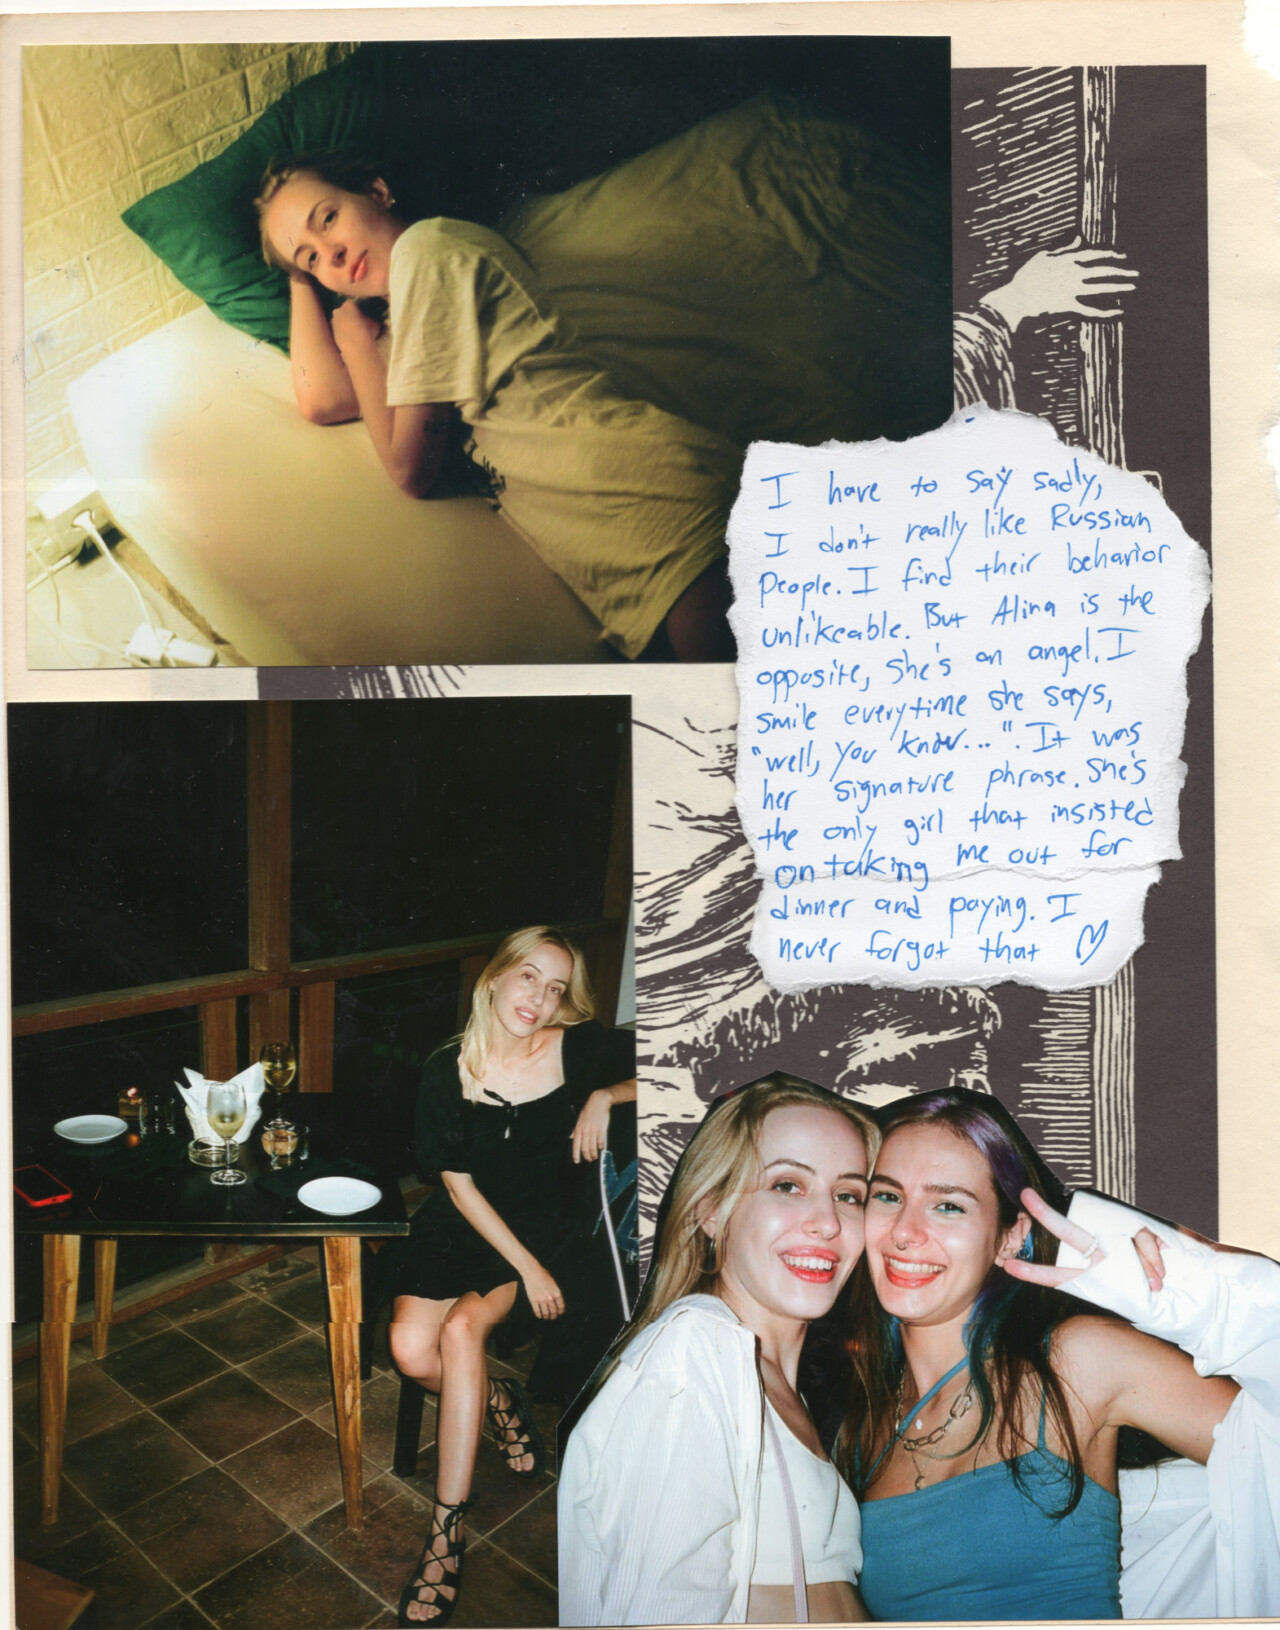 I have to say sadly,
I don't really like Russian
People. I find their behavior
unlikeable. But Alina is the
opposite, she's an angel. I
smile everytime she says,
"well, you know...". It was
her signature phrase. She's
the only girl that insisted
on taking me out for
dinner and paying. I
never forgot that ♡